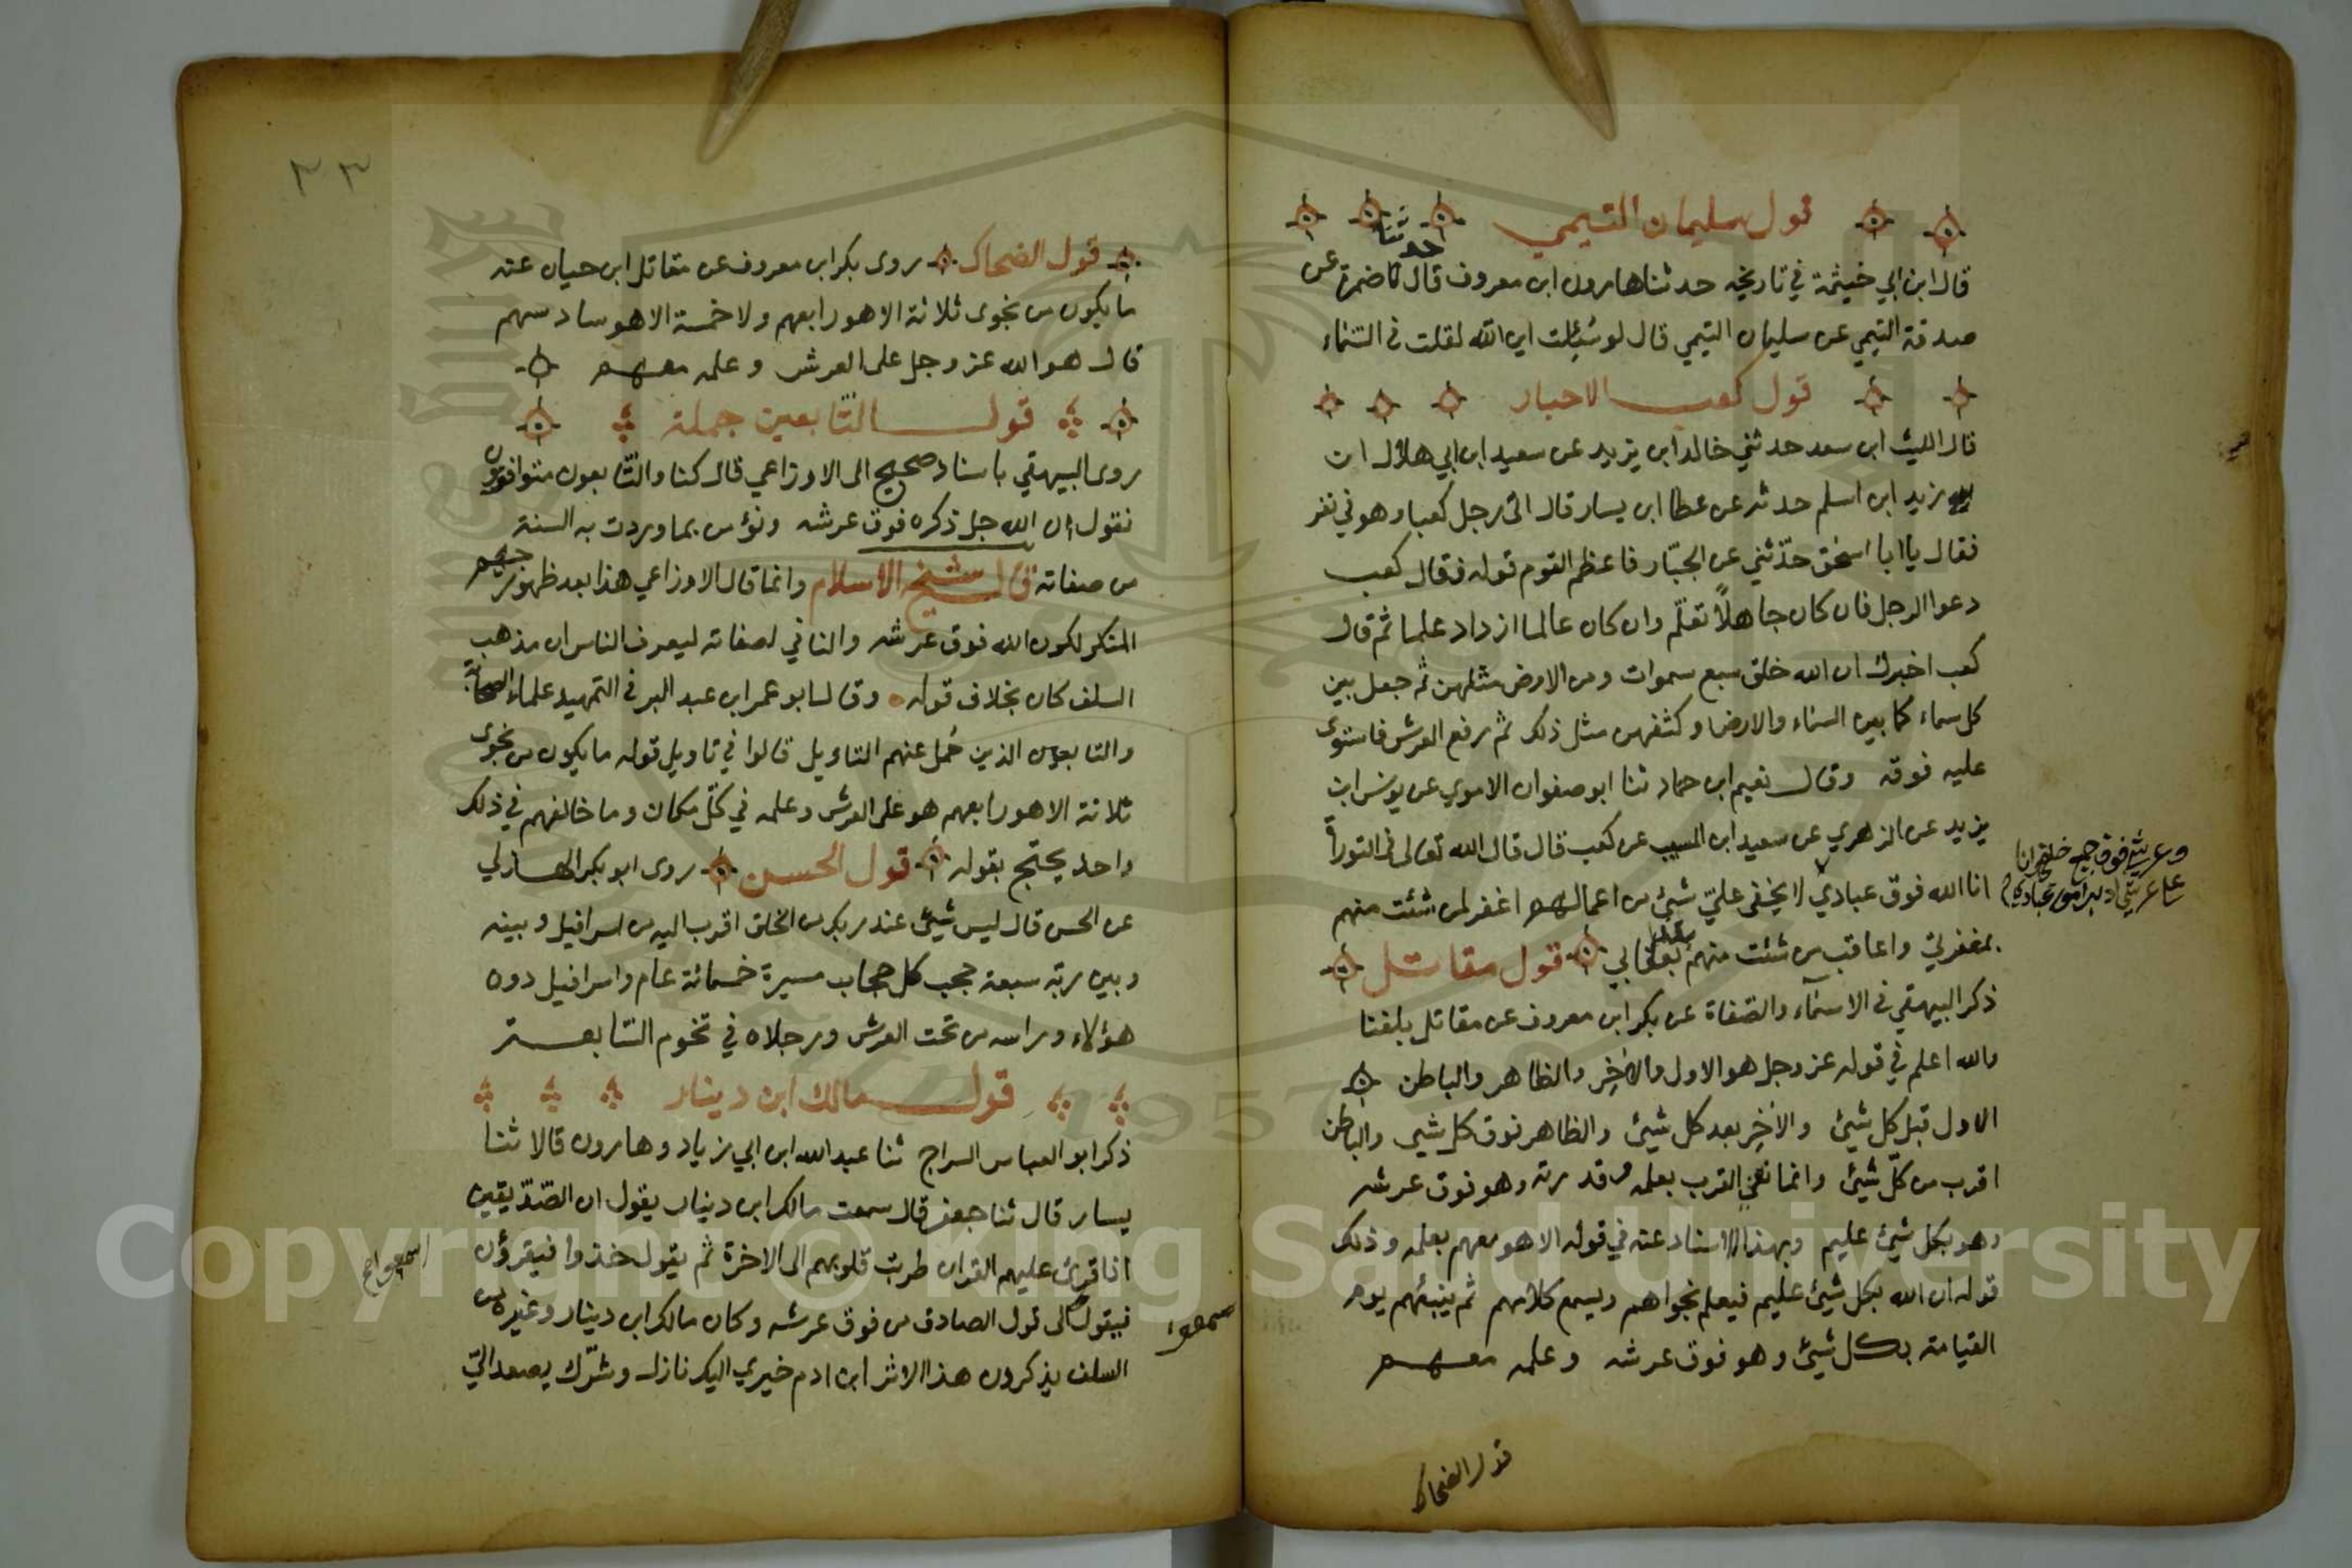 قول سليمان التيمي
قال ابن ابي خيثمة في تاريخه حدثنا هارون ابن معروف قال حدثنا ضمرة عن
صدقة التيمي عن سليمان التيمي قال لو سُئِلت اين الله لقلت في السماء
قول كعب الاحبار
قال الليث ابن سعد حدثني خالد ابن يزيد عن سعيد ابن ابي هلال ان
زيد ابن اسلم حدثه عن عطا ابن يسار قال اتى رجل كعبا وهو في نفر
فقال يا ابا اسحق حدّثني عن الجبّار فاعظم القوم قوله فقال كعب
دعوا الرجل فان كان جاهلاً تعلّم وان كان عالما ازداد علما ثم قال
كعب اخبرك ان الله خلق سبع سموات ومن الارض مثلهن ثم جعل بين
كل سماء كما بين السماء والارض وكثفهن مثل ذلك ثم رفع العرش فاستوى
عليه فوقه وقال نعيم ابن حماد ثنا ابو صفوان الاموي عن يونس ابن
يزيد عن الزهري عن سعيد ابن المسيب عن كعب قال قال الله تعالى في التوراة
انا الله فوق عبادي لا يخفى عليّ شيئ من اعمالهم اغفر لمن شئت منهم
وعرشي فوق جميع خلقي وانا
على عرشي ادبر امور عبادي
بمغفرتي واعاقب من شئت منهم بعقابي قول مقاتل
ذكر البيهقي في الاسمآء والصفاة عن بكر ابن معروف عن مقاتل بلغنا
والله اعلم في قوله عز وجل هو الاول والاخِر والظاهر والباطن
الاول قبل كل شيئ والاخِر بعد كل شيئ والظاهر فوق كل شيى والباطن
اقرب من كلّ شيئ وانما نعني القرب بعلمه وقدرته وهو فوق عرشه
وهو بكل شيئ عليم وبهذا الاسناد عنه في قوله الا هو معهم بعلمه وذلك
قوله ان الله بكل شيئ عليم فيعلم نجواهم ويسمع كلامهم ثم ينبئهم يوم
القيامة بكل شيئ وهو فوق عرشه وعلمه معهم
قول الضحاك
٣٣
قول الضحاك روى بكر ابن معروف عن مقاتل ابن حيان عنه
ما يكون من نجوى ثلاثة الا هو رابعهم ولا خمسة الا هو سادسهم
قال هو الله عز وجل على العرش وعلمه معهم
قول التابعين جملة
روى البيهقي باسناد صحيح الى الاوزاعي قال كنا والتّابعون متوافقون
نقول ان الله جل ذكره فوق عرشه ونؤمن بما وردت به السنة
من صفاته قال شيخ الاسلام وانما قال الاوزاعي هذا بعد ظهور جهم
المنكر لكون الله فوق عرشه والنافي لصفاته ليعرف الناس ان مذهب
السلف كان بخلاف قوله وقال ابو عمر ابن عبد البر في التمهيد علماء الصحابة
والتابعين الذين حُمل عنهم التاويل قالوا في تاويل قوله ما يكون من نجوى
ثلاثة الا هو رابعهم هو على العرش وعلمه في كلّ مكان وما خالفهم في ذلك
واحد يحتج بقوله قول الحسن روى ابو بكر الهذلي
عن الحسن قال ليس شيئ عند ربك من الخلق اقرب اليه من اسرافيل وبينه
وبين ربّه سبعة حجب كل حجاب مسيرة خمسمائة عام واسرافيل دون
هؤلاء وراسه من تحت العرش ورجلاه في تخوم السّابعة
قول مالك ابن دينار
ذكر ابو العباس السراج ثنا عبد الله ابن ابي زياد وهارون قالا ثنا
يسار قال ثنا جعفر قال سمعت مالك ابن دينار يقول ان الصّدّيقين
اذا قرئ عليهم القران طربت قلوبهم الى الاخرة ثم يقول خذوا فيقرؤن
فيقول الى قول الصادق من فوق عرشه وكان مالك ابن دينار وغيره من
اسمعوا
السلف يذكرون هذا الاثر ابن ادم خيري اليك نازل وشرّك يصعد اليّ